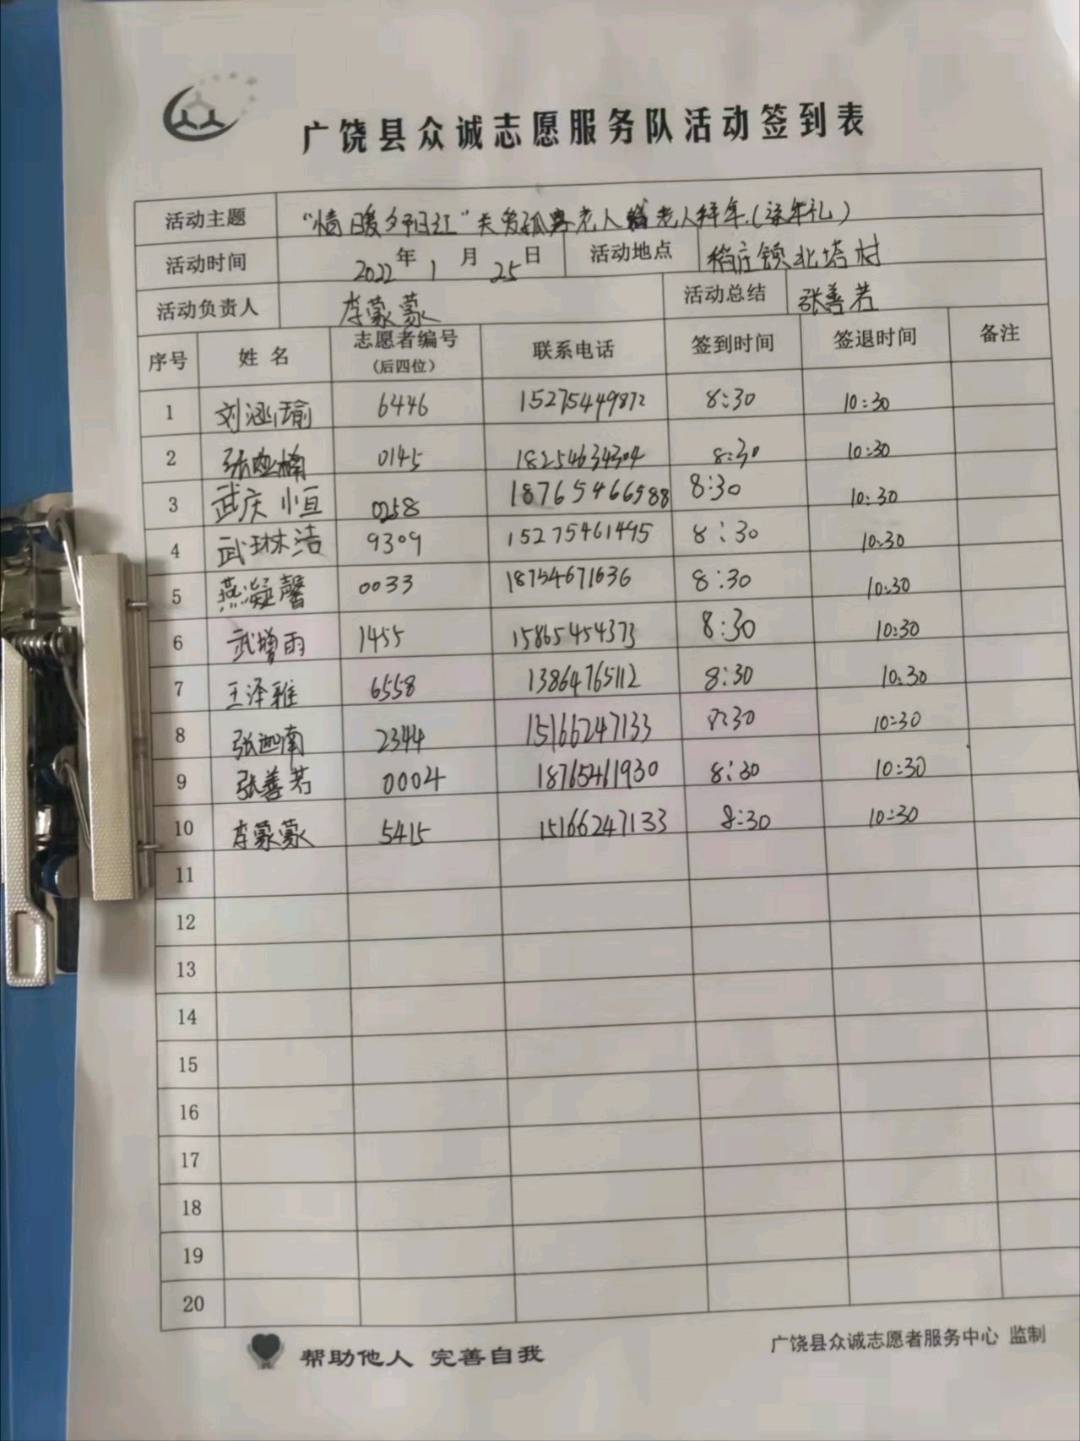 广饶县众诚志愿服务队活动签到表
活动主题 "情暖夕阳红"关爱孤寡老人给老人拜年(送年礼)
活动时间 2022年1月25日 活动地点 稻庄镇北塔村
活动负责人 李蒙蒙 活动总结 张善若
序号 姓名 志愿者编号(后四位) 联系电话 签到时间 签退时间 备注
1 刘涵瑜 6446 15275449872 8:30 10:30
2 张楠 0145 18254634304 8:30 10:30
3 武庆恒 0258 18765466588 8:30 10:30
4 武琳洁 9309 15275461495 8:30 10:30
5 燕凝馨 0033 18754671636 8:30 10:30
6 武增雨 1455 15865454373 8:30 10:30
7 王泽雅 6558 13864765112 8:30 10:30
8 张迦南 2344 15166247133 8:30 10:30
9 张善若 0004 18765461930 8:30 10:30
10 李蒙蒙 5415 15166247133 8:30 10:30
11
12
13
14
15
16
17
18
19
20
帮助他人 完善自我
广饶县众诚志愿者服务中心 监制